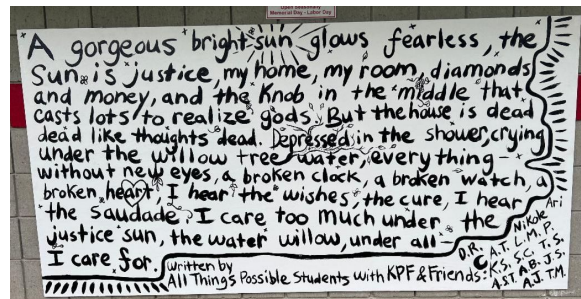 Memorial Day - Labor Day
A gorgeous bright sun glows fearless, the
Sun is justice, my home, my room, diamonds
and money, and the Knob in the middle that
casts lots to realize gods. But the house is dead
dead like thoughts dead. Depressed in the shower, crying
under the willow tree water, everything -
without new eyes, a broken clock, a broken watch, a
broken heart, I hear the wishes, the cure, I hear
the saudade. I care too much under the
justice sun, the water willow, under all -
I care for.
written by
All Things Possible Students with KPF & Friends:
Ari
Nikole
D.R. A.T. L.M.P.
K.S. S.C. T.S.
A.S.T. A.B. J.S.
A.J. T.M.